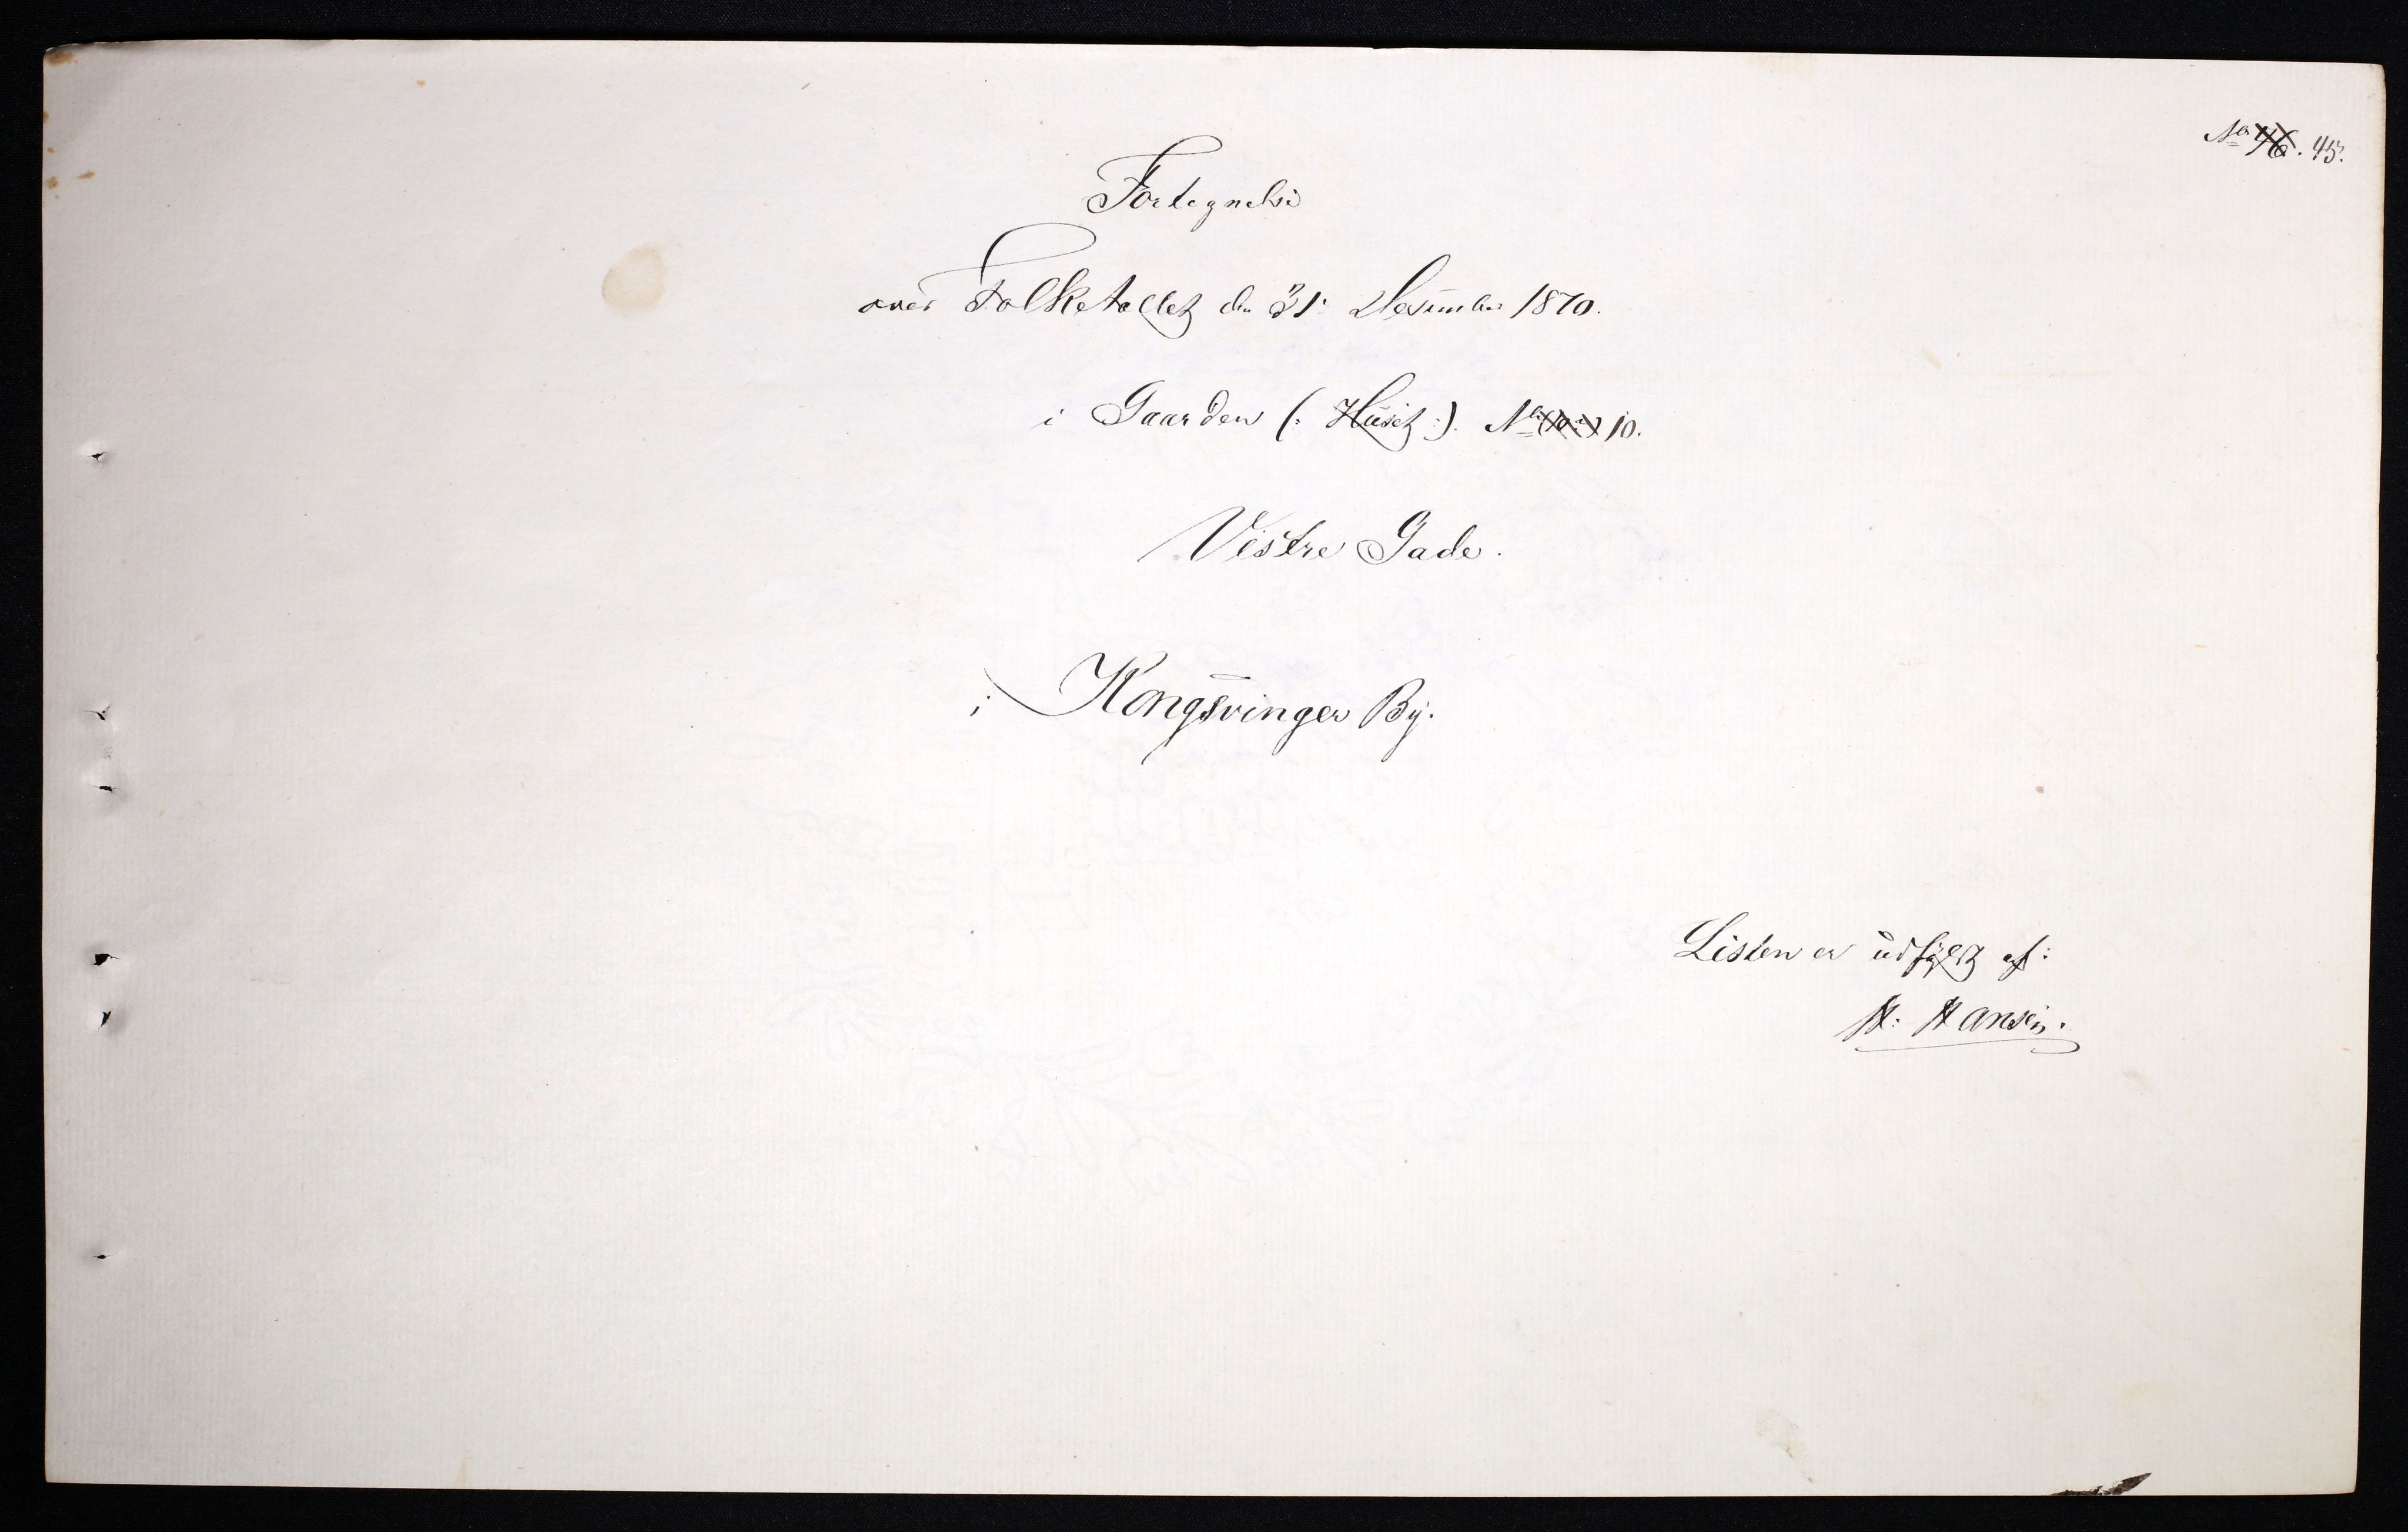 No 46. 45.
Fortegnelse
over Folketallet den 31. December 1870.
i Gaarden (: Huset :). No 10.
Vestre Gade.
i Kongsvinger By.
Listen er udfyldt af:
H. Hansen.